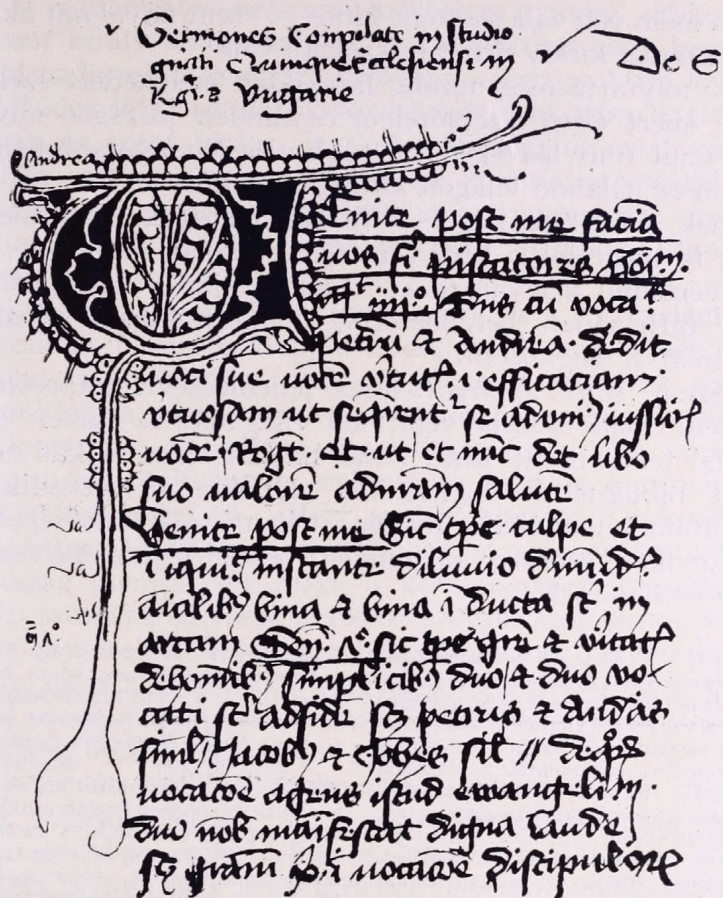 Sermones Compilate in studio
gnāli Quinque Ecclesiensi in
Rgͥ. Vngarie
De S
Andrea
Venite post me faciā
uos fi piscatores hoīm.
mͭ iiiiº. Dns cū vocaͭ
petrū & Andreā. dedit
uoti sue uocē v̄tut. i. efficaciam
v̄tuosam ut seq̄rent se ad oni iussioē
uocē. Rogͭ. et. ut et nūc det libo
suo ualorē ad nr̄am salutē
Venite post me Sic tp̄e culpe et
īiquiͭ. instante diluuio d
aīalib bina & bina ī ducta st in
arcam Gen. sic tp̄e gr̄e & v̄itat
de homīb simplicib duo & duo vo
cati st ad fidē sꝫ petrus & Andͤas
simͬ Jacob & Johes sil // de qͦ
uocatōe agens istud ewangeliū.
duo nob māifestat digna laude
sꝫ gr̄am ī uocatōe discipuloꝝ